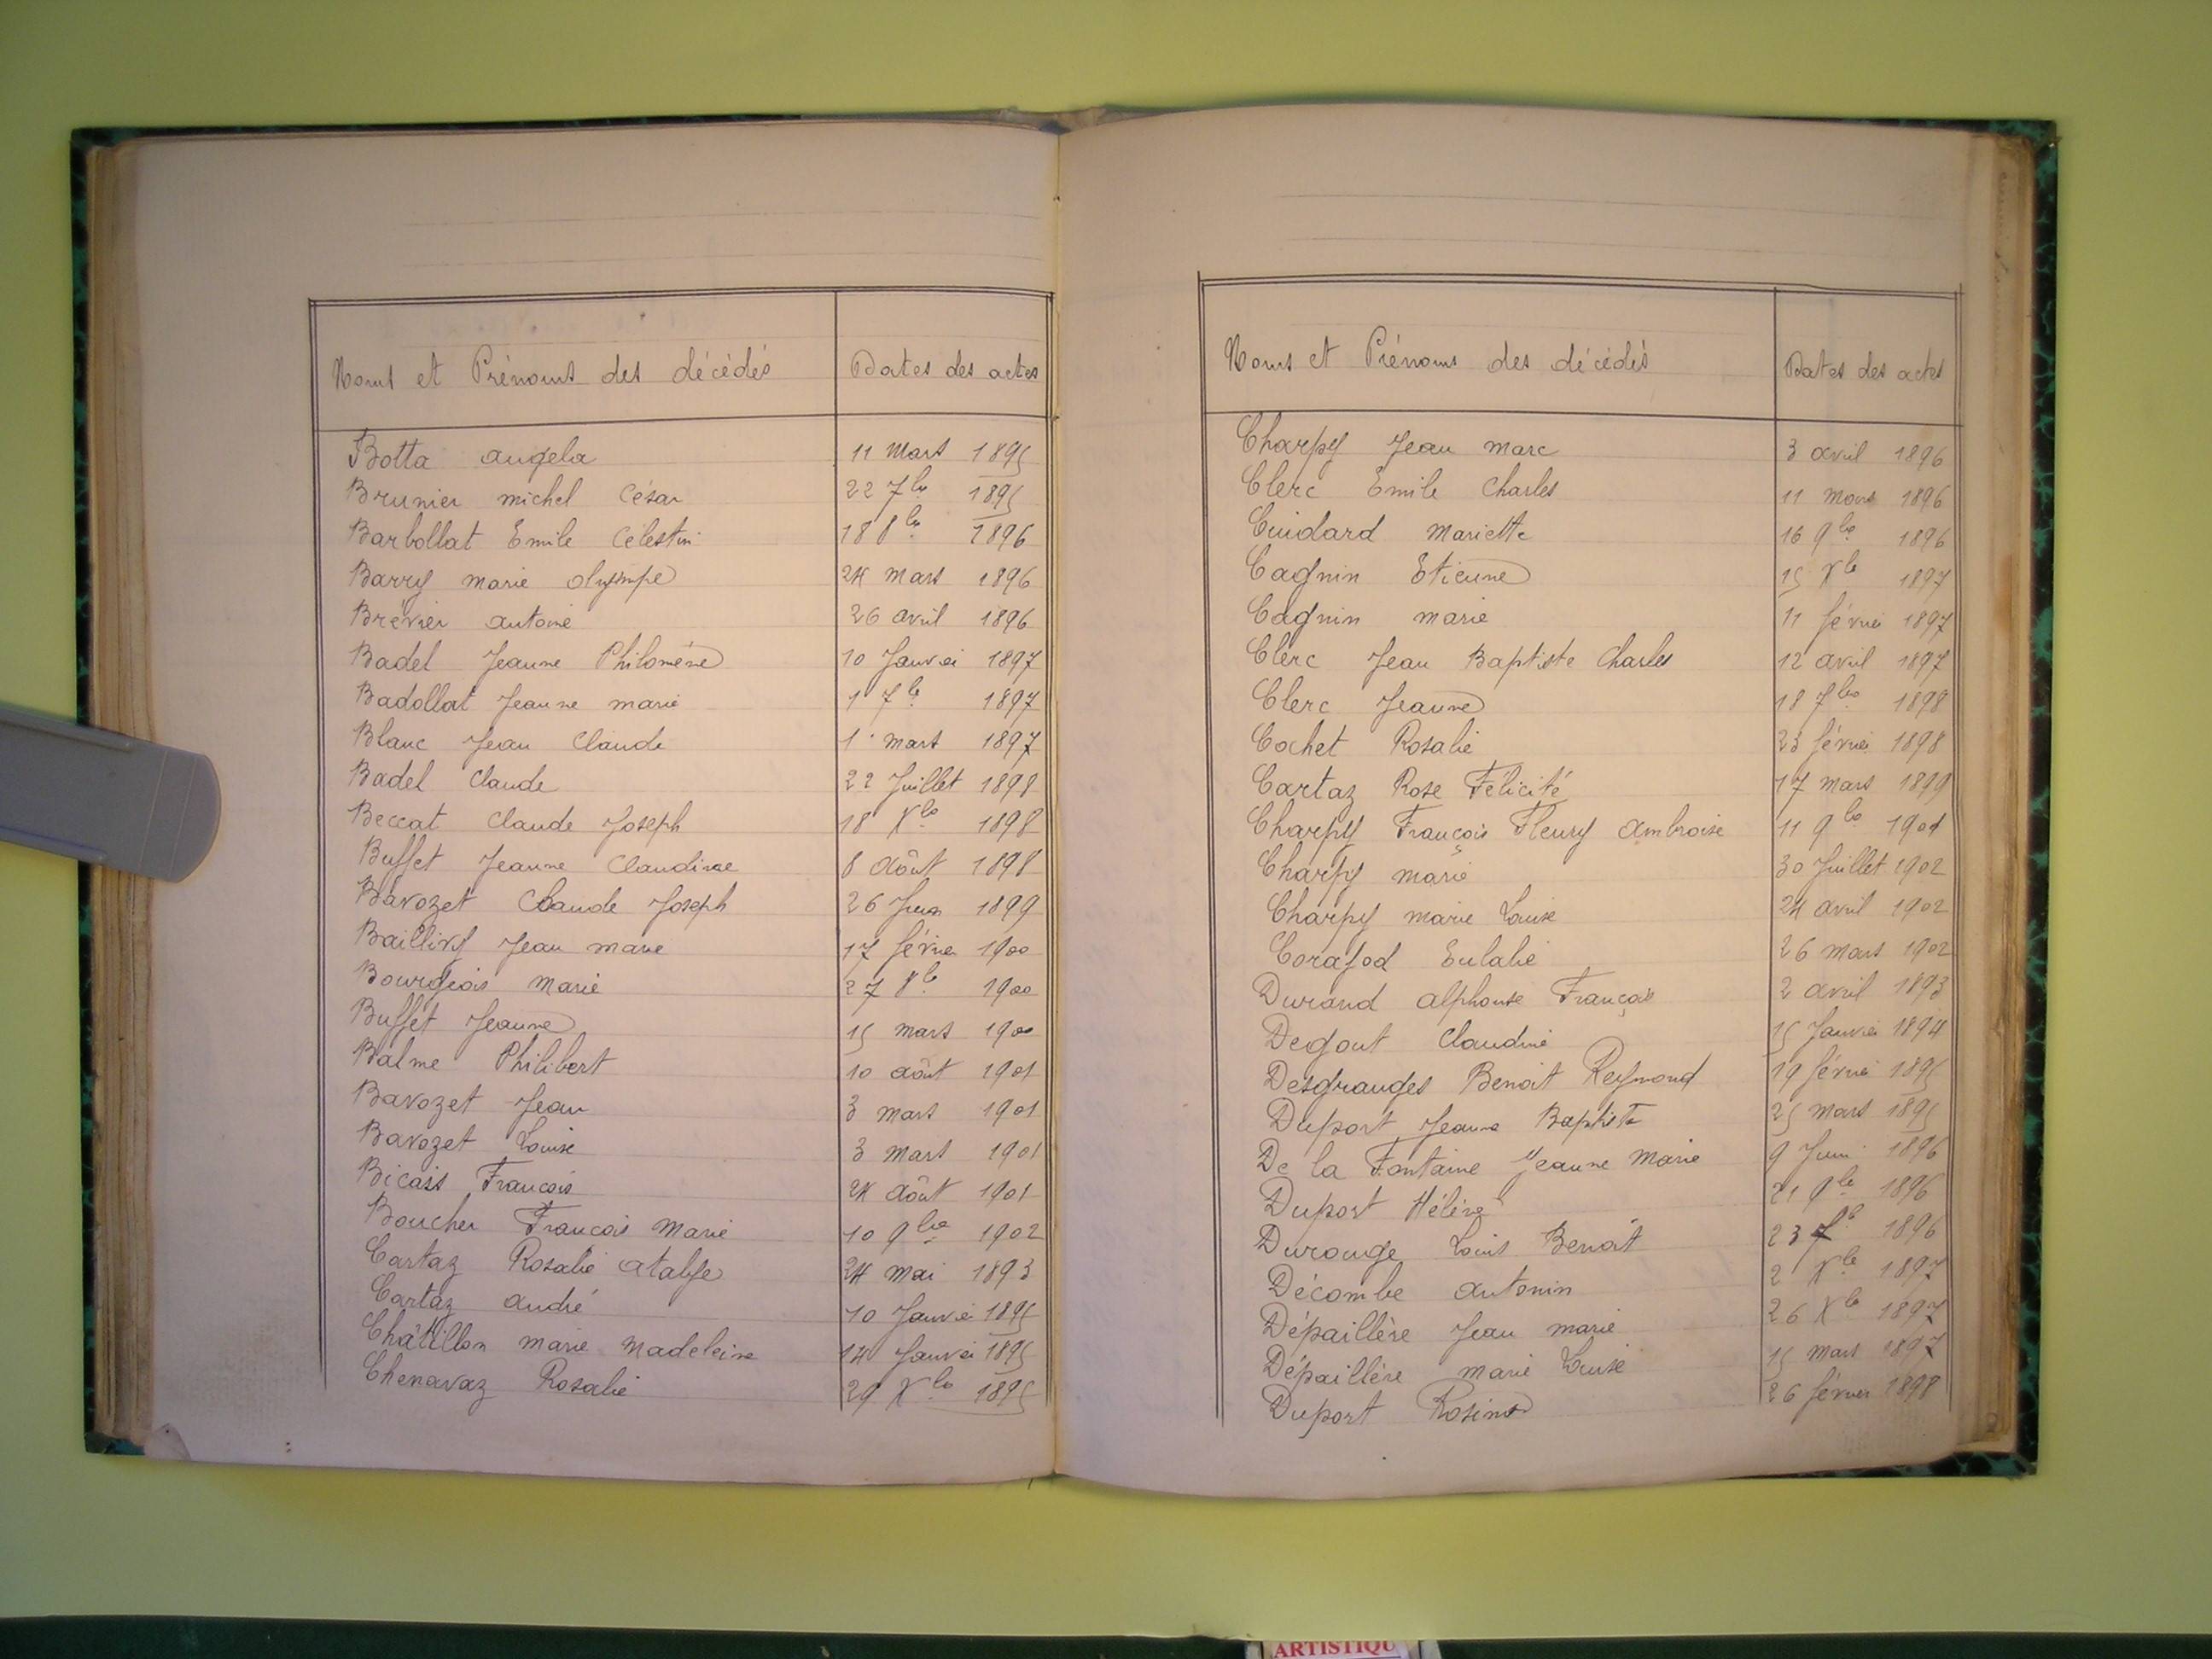 Noms et Prénoms des décédés Dates des actes
Botta Angela 11 Mars 1895
Brunier michel César 22 7bre 1895
Barbollat Emile Célestin 18 8bre 1896
Barry marie Olympe 24 mars 1896
Brévier antoine 26 avril 1896
Badel Jeanne Philomène 10 Janvier 1897
Badollat Jeanne marie 1 7b 1897
Blanc Jean Claude 1 mars 1897
Badel Claude 22 Juillet 1898
Beccat Claude Joseph 18 Xbre 1898
Buffet Jeanne Claudine 8 Août 1898
Bavozet Claude Joseph 26 Juin 1899
Baillivy Jean marie 17 février 1900
Bourgeois Marie 27 8b 1900
Buffet Jeanne 15 mars 1900
Balme Philibert 10 août 1901
Bavozet Jean 3 mars 1901
Bavozet Louise 3 mars 1901
Bicais François 24 août 1901
Boucher François Marie 10 9bre 1902
Cartaz Rosalie 24 mai 1893
Cartaz André 10 Janvier 1895
Châtillon marie Madeleine 14 Janvier 1895
Chenavaz Rosalie 29 Xbre 1895
Noms et Prénoms des décédés Dates des actes
Charpy Jean marc 3 avril 1896
Clerc Emile Charles 11 mars 1896
Cuidard Mariette 16 9bre 1896
Cagnin Etienne 15 Xb 1897
Cagnin marie 11 février 1897
Clerc Jean Baptiste Charles 12 avril 1897
Clerc Jeanne 18 7bre 1898
Cochet Rosalie 23 février 1898
Cartaz Rose Félicité 17 mars 1899
Charpy François Fleury Ambroise 11 9bre 1901
Charpy marie 30 Juillet 1902
Charpy marie Louise 24 avril 1902
Corajod Eulalie 26 mars 1902
Durand Alphonse François 2 avril 1893
Degout Claudine 15 Janvier 1894
Desgranges Benoit Reymond 19 février 1895
Duport Jeanne Baptiste 25 mars 1895
De la Fontaine Jeanne Marie 9 Juin 1896
Duport Hélène 21 9b 1896
Durouge Louis Benoît 23 1896
Décombe Antonin 2 Xb 1897
Dépaillère Jean marie 26 Xb 1897
Dépaillère marie Louise 15 mars 1897
Duport Rosine 26 février 1898
ARTISTIQU